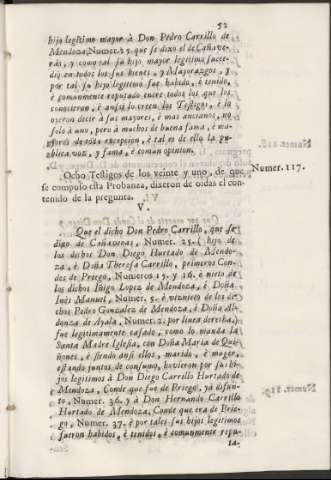 52
hijo legitimo mayor à Don Pedro Carrillo de
Mendoza, Numer. 25. que se dixo el de Cañave-
ras, y como tal su hijo mayor legitimo suce-
diò en todos los sus bienes, y Mayorazgos, y
por tal su hijo legitimo fue habido, è tenido,
è comunmente reputado entre todos los que los
conocieron, è ansi lo creen los Testigos, è lo
oyeron decir à sus mayores, è mas ancianos, no
solo à uno, pero à muchos de buena fama, è ma-
yores de toda excepcion, è tal es de ello la pu-
blica voz, y fama, è comun opinion.
Ocho Testigos de los veinte y uno, de que
se compuso esta Probanza, dixeron de todas el con-
tenido de la pregunta.
Numer. 117.
V.
Que el dicho Don Pedro Carrillo, que se
dixo de Cañaveras, Numer. 25. (hijo de
los dichos Don Diego Hurtado de Mendo-
za, è Doña Theresa Carrillo, primeros Con-
des de Priego, Numeros 15. y 16. è nieto de
los dichos Iñigo Lopez de Mendoza, è Doña
Inès Manuel, Numer. 5. è viznieto de los di-
chos Pedro Gonzalez de Mendoza, è Doña Al-
donza de Ayala, Numer. 2. por linea derecha,)
fue legitimamente casado, como lo manda la
Santa Madre Iglesia, con Doña Maria de Qui-
ñones, è siendo ansi ellos, marido, è muger,
estando juntos de consumo, huvieron por sus hi-
jos legitimos à Don Diego Carrillo Hurtado de
Mendoza, Conde que fue de Priego, yà difun-
to, Numer. 36. y à Don Hernando Carrillo
Hurtado de Mendoza, Conde que era de Prie-
go, Numer. 37. è por tales sus hijos legitimos
fueron habidos, è tenidos, è comunmente repu-
ta-